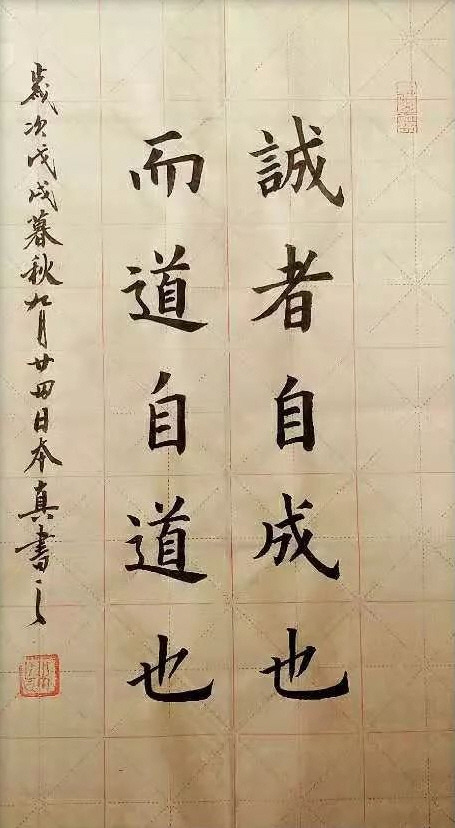 誠者自成也
而道自道也
歲次戊戌暮秋九月廿四日本真書之